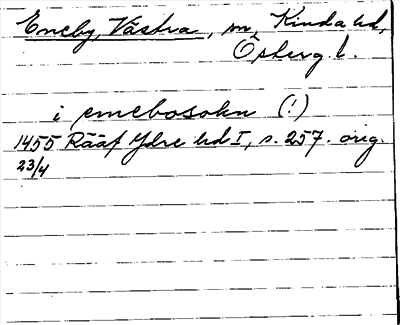 Eneby, Västra, sn, Kinda hd,
Österg. l.
i emebosokn (!)
1455 Rääf Ydre hd I, s. 257. orig.
23/4